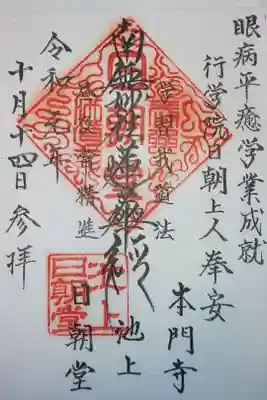 眼病平癒学業成就
行学院日朝上人奉安
本門寺
池上
日朝堂
学習我道法
南無妙法蓮華経
晝夜常精進
令和元年
十月十四日参拝
池上
日朝堂